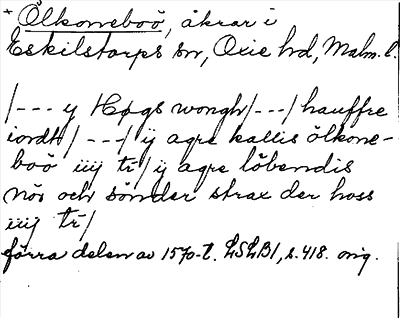 * Ölkoneboö, åkrar i
Eskilstorps sn, Oxie hd, Malm. l.
/--- y Høgs wongh /---/ hauffre
iordt / ---/ ij agre kallis ölkone-
boö iiij tr̄ / ij agre löbendis
nör och sönder strax der hoss
iiij tr̄ /
förra delen av 1570-t. LSLB1, s. 418. orig.